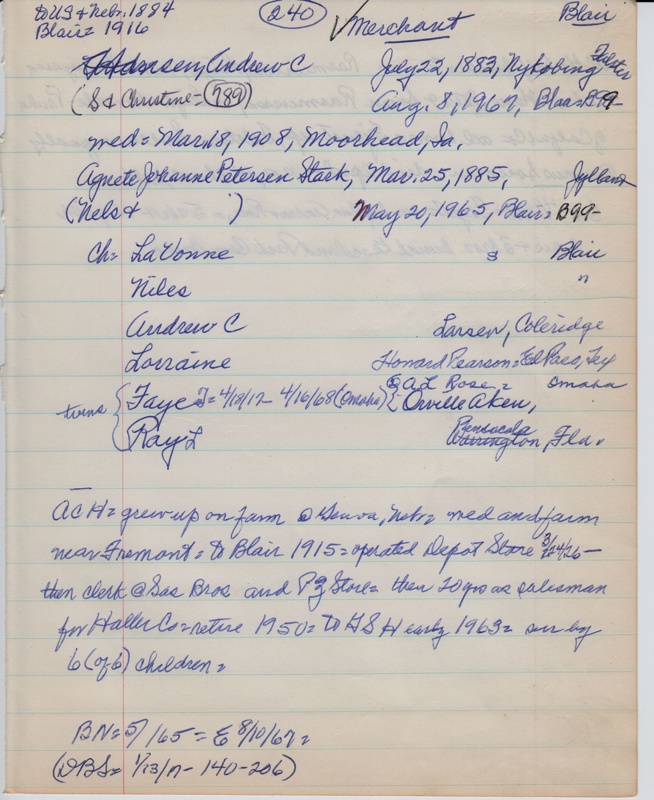 to US & Nebr. 1884
Blair = 1916
240
✓ Merchant
Blair
Andrew C July 22, 1883, Nykobing Falster
(S & Christine = 789) Aug. 8, 1967, Blair = B99-
med = Mar. 18, 1908, Moorhead, Ia.
Agnete Johanne Petersen Stark, Mar. 25, 1885, Jylland
(Nels & ) May 20, 1965, Blair = B99-
Ch = LaVonne s Blair
Niles "
Andrew C Larsen, Coleridge
Lorraine Howard Pearson = El Paso, Tex
twins { Faye = 4/18/17 - 4/16/68 (Omaha) { A L Rose = Omaha
Orville Aken,
Ray L Pensacola
Warrington, Fla.
ACH = grew up on farm @ Genva, Nebr = med and farm
near Fremont = to Blair 1915 = operated Depot Store 3/24/26 -
then clerk @ Sas Bros and PZ Store = then 20 yrs as salesman
for Haller Co = retire 1950 = to GSH early 1963 = sur by
6 (of 6) children =
BN = 5/ /65 = E 8/10/67 =
(DBS = 1/13/ - 140-206)